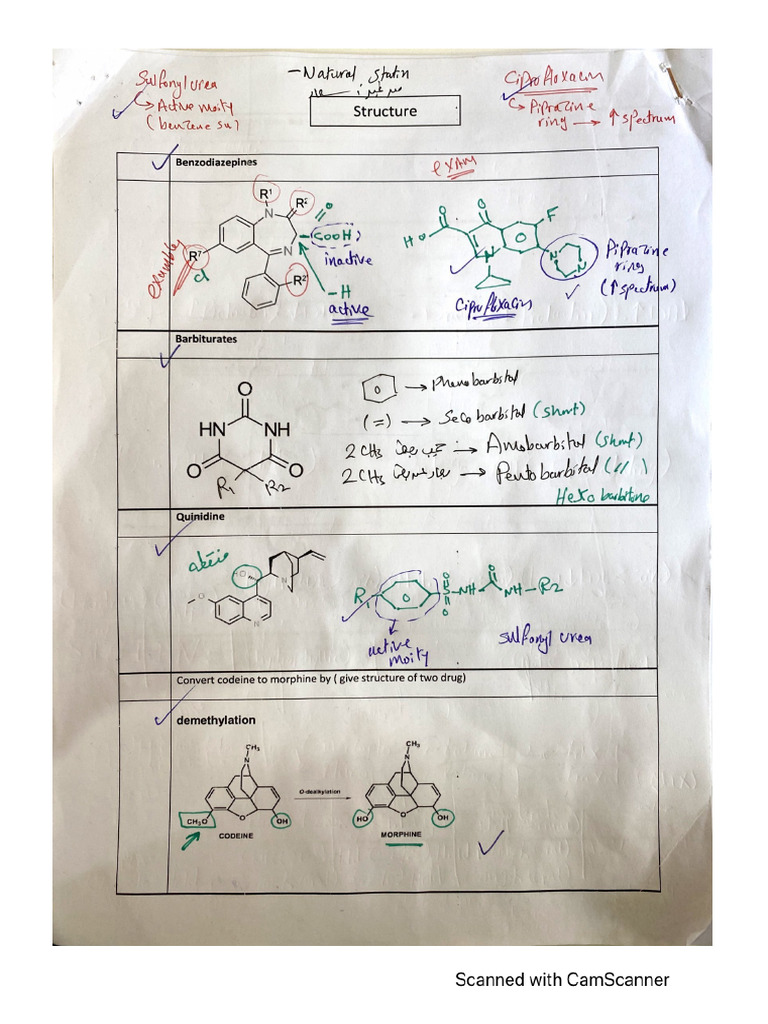 Sulfonyl urea
↳ Active moity
(benzene su)
- Natural statin
Structure
Ciprofloxacin
↳ Piprazine
ring → ↑ spectrum
Benzodiazepines
exam
R¹
N
R²
R⁷
cl
N
R²'
O
COOH
inactive
- H
active
O
O
HO
F
O
N
N
N
Ciprofloxacin
Piprazine
ring
(↑ spectrum)
Barbiturates
O
HN
NH
O
O
R1
R2
→ Phenobarbital
(=) → Secobarbital (short)
2 CH3 → Amobarbital (short)
2 CH3 → Pentobarbital (//)
Hexobarbitone
Quinidine
HO
N
O
N
R1
O
S
O
NH
O
NH - R2
active
moity
sulfonyl urea
Convert codeine to morphine by ( give structure of two drug)
demethylation
CH3
N
CH3O
O
OH
CODEINE
O-dealkylation
CH3
N
HO
O
OH
MORPHINE
Scanned with CamScanner